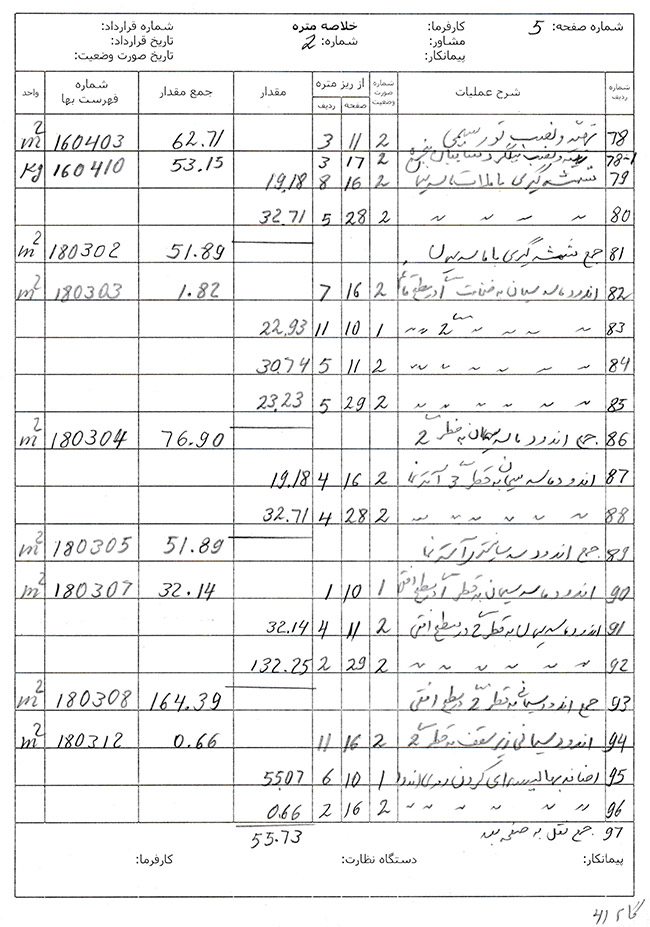 شماره صفحه: 5 کارفرما: خلاصه متره شماره قرارداد:
مشاور: شماره: 2 تاریخ قرارداد:
پیمانکار: تاریخ صورت وضعیت:
شماره ردیف شرح عملیات شماره صورت وضعیت از ریز متره صفحه ردیف مقدار جمع مقدار شماره فهرست بها واحد
78 تهیه و نصب تور سیمی 2 11 3 62.71 160403 m2
78-1 تهیه و نصب 2 17 3 53.15 160410 kg
79 شمشه گیری با ملات ماسه سیمان 2 16 8 19.18
80 〃 〃 〃 〃 2 28 5 32.71
81 جمع شمشه گیری با ماسه سیمان 51.89 180302 m2
82 اندود ماسه سیمان به ضخامت 2 16 7 1.82 180303 m2
83 〃 〃 〃 〃 2 〃 〃 1 10 11 22.93
84 〃 〃 〃 〃 〃 〃 2 11 5 30.74
85 〃 〃 〃 〃 〃 〃 2 29 5 23.23
86 جمع اندود ماسه سیمان به قطر 2 76.90 180304 m2
87 اندود ماسه سیمان به قطر 3 2 16 4 19.18
88 〃 〃 〃 〃 〃 〃 2 28 4 32.71
89 جمع اندود 51.89 180305 m2
90 اندود ماسه سیمان به قطر 1 10 1 32.14 180307 m2
91 اندود ماسه سیمان به قطر 2 در سطح افقی 2 11 4 32.14
92 〃 〃 〃 〃 〃 〃 2 29 2 132.25
93 جمع اندود سیمانی به قطر 2 در سطح افقی 164.39 180308 m2
94 اندود سیمانی زیر سقف به قطر 2 2 16 11 0.66 180312 m2
95 اضافه بها لیسه ای کردن روی اندود 1 10 6 55.07
96 〃 〃 〃 〃 〃 〃 2 16 2 0.66
97 جمع نقل به صفحه بعد 55.73
پیمانکار: دستگاه نظارت: کارفرما: